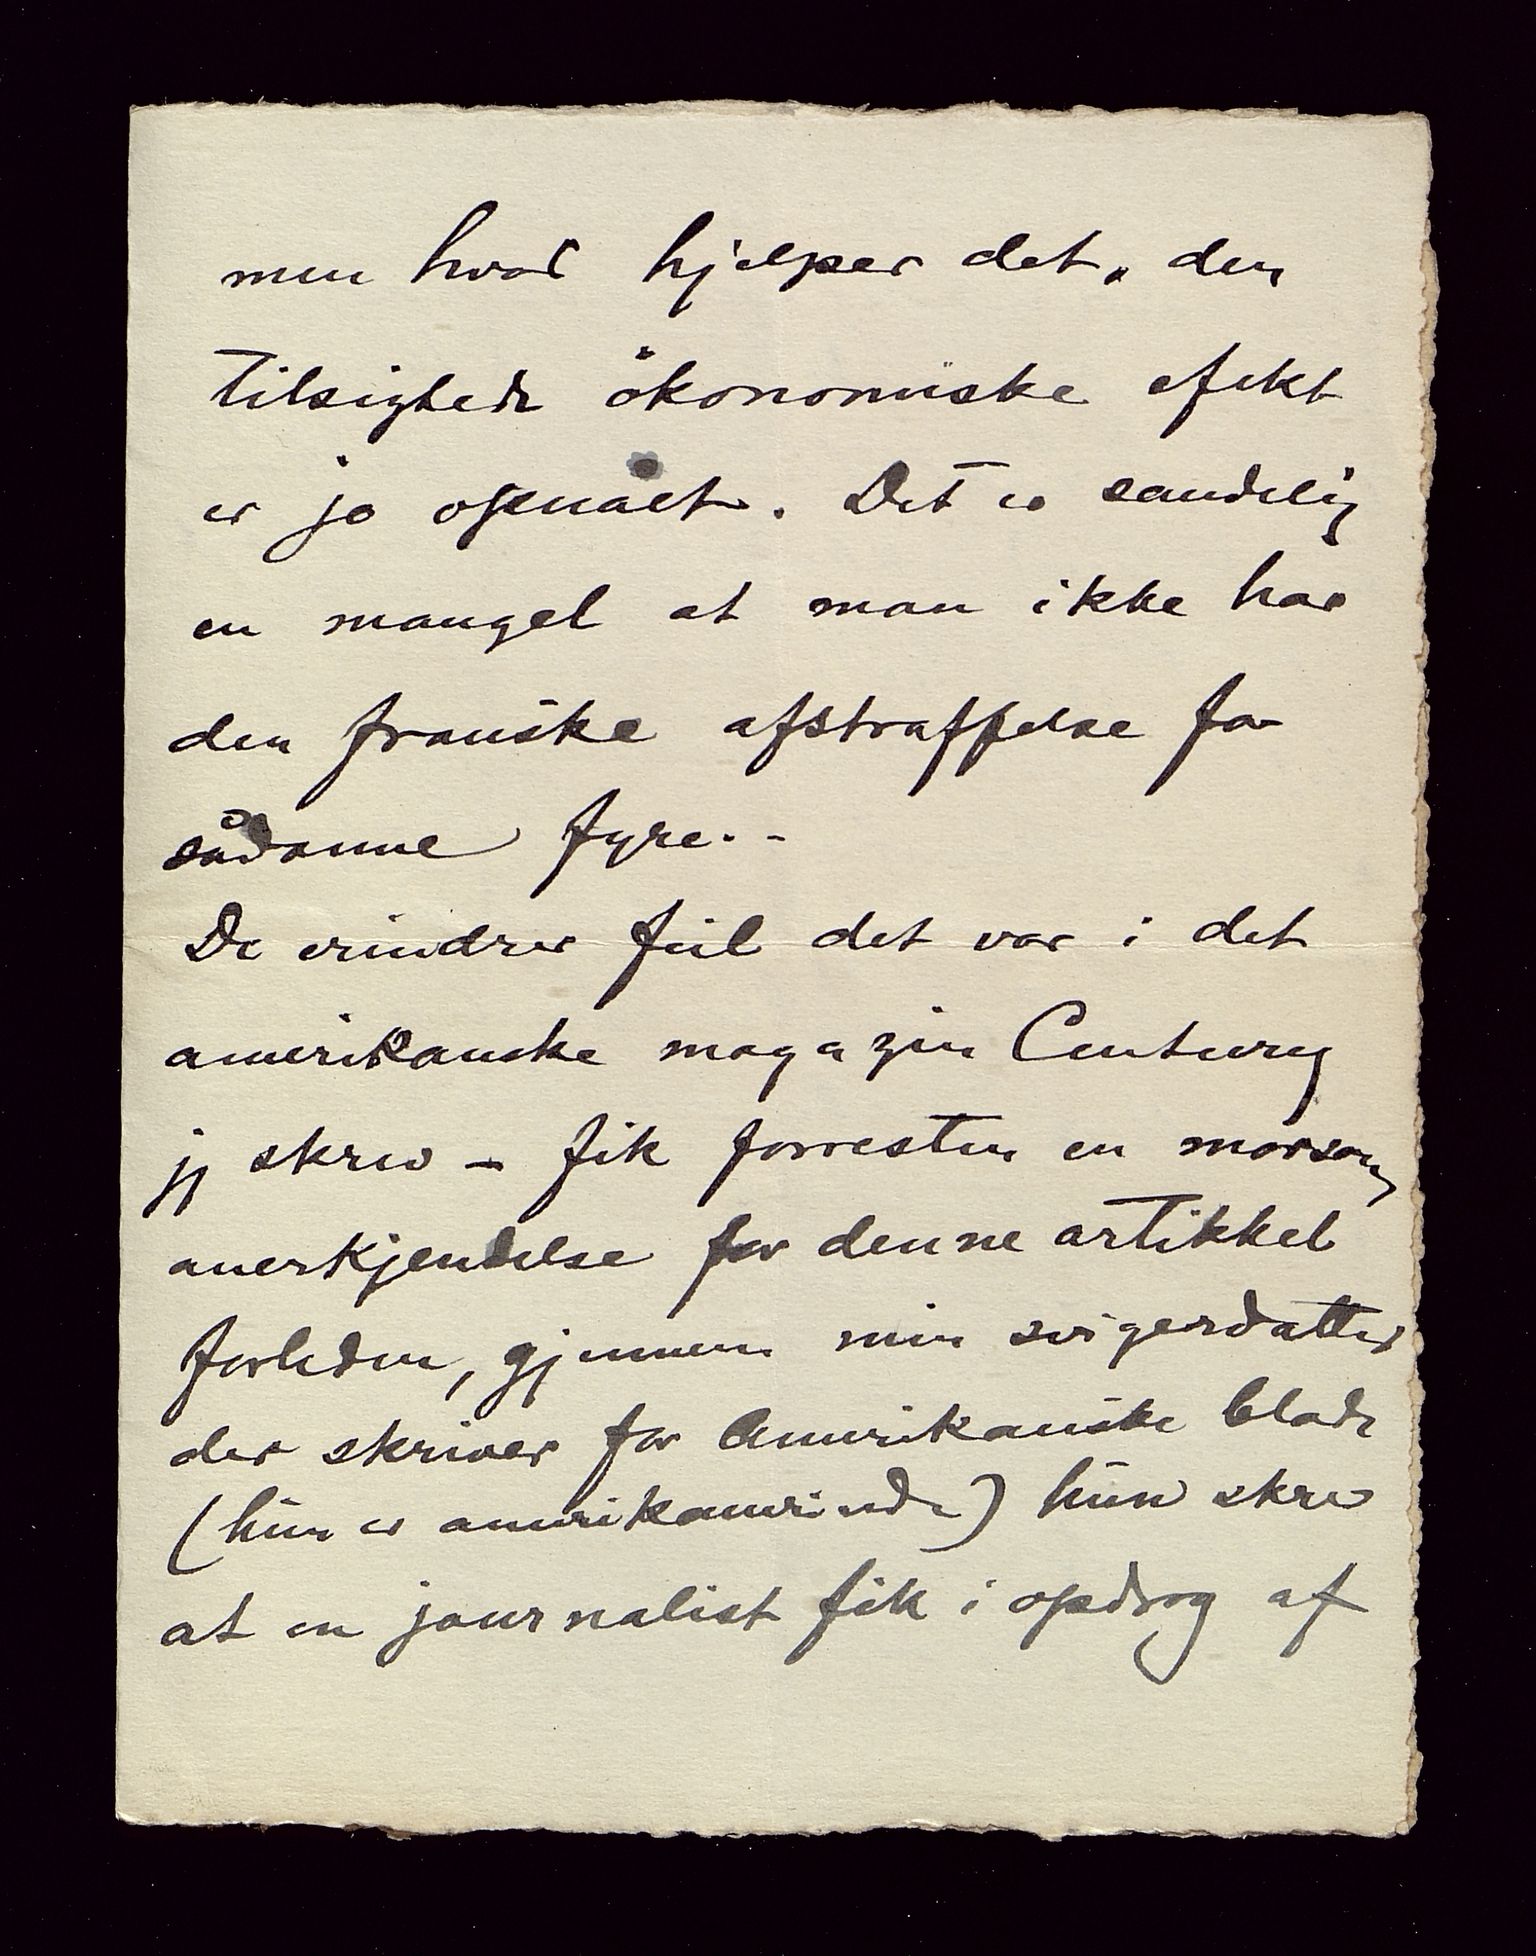 men hvad hjælper det, den
tilsigtede ökonomiske efekt
er jo opnået. Det er sandelig
en mangel at man ikke har
den franske afstraffelse for
sådanne fyre. -
De erindrer feil det var i det
amerikanske magazin Century
jeg skrev - fik forresten en morsom
anerkjendelse for denne artikkel
forleden, gjennem min svigerdatter
der skriver for Amerikanske blade
(hun er amerikanerinde) hun skrev
at en journalist fik i opdrag af